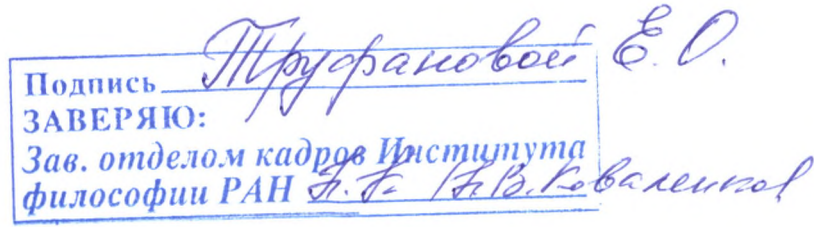 Подпись Труфановой Е.О.
ЗАВЕРЯЮ:
Зав. отделом кадров Института
философии РАН Н.В. Коваленков